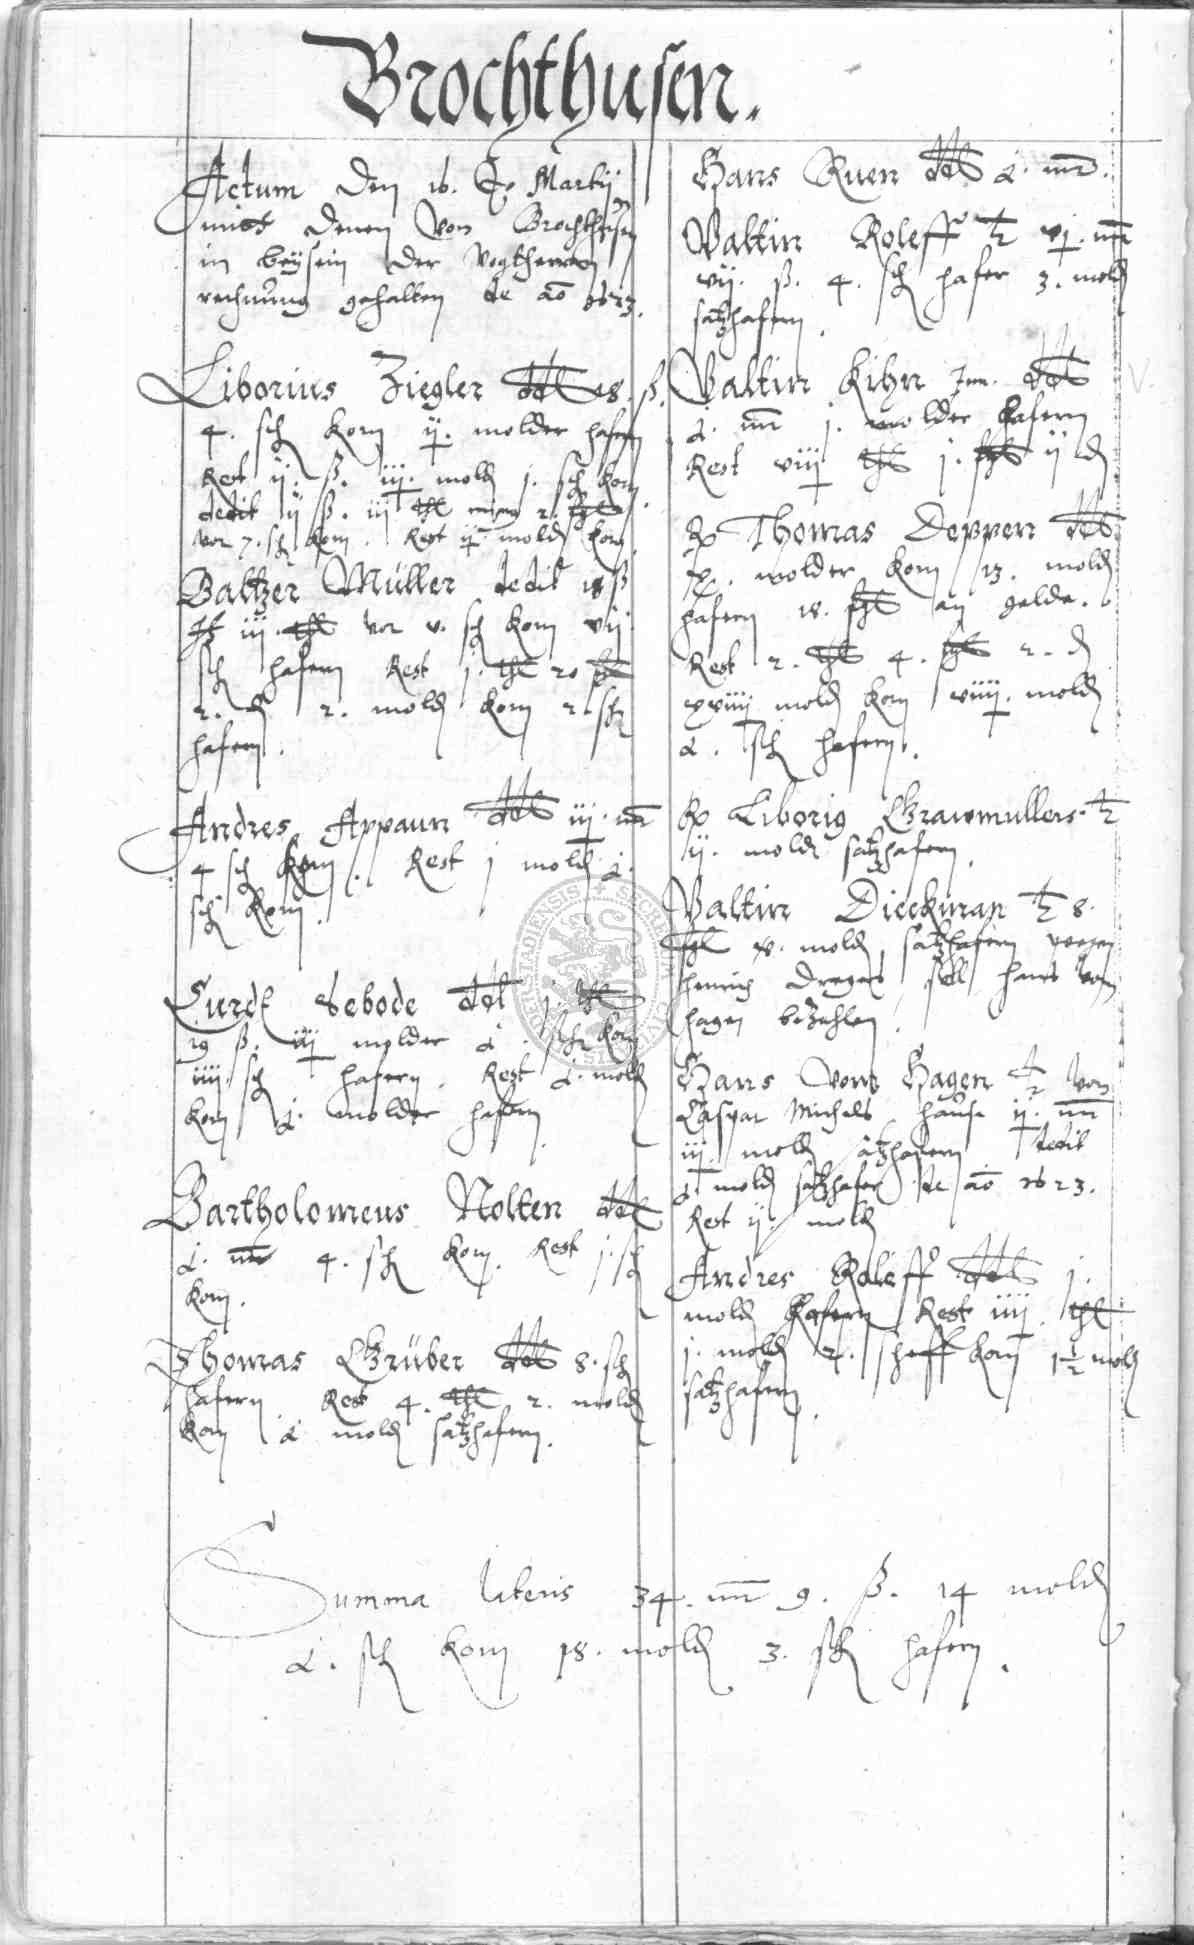 Brochthusen.
Actum den 16. Martij
mitt denen von Brochthusen
in beysein der Vogtherren
rechnung gehalten de ao 1623.
Liborius Ziegler dedt 18. ß.
4. sch korn ij. molder hafern
Rest ij. ß. iij. mold j. sch korn.
dedit ij ß. iij thl
vor 7. sch korn. Rest ij mold korn
Baltzer Müller dedit 18 ß
iij. thl vor v. sch korn vij.
sch hafern Rest j. thl 20
2. d 2. mold korn 2. sch
hafern.
Andres Appaun dedt iij. mr
4 sch korn. Rest j mold
sch korn.
Curdt Sebode dedt j. thl
19 ß. iij molder sch korn
iiij. sch hafern. Rest mold
korn molder hafern
Bartholomeus Nolten dedt
mr 4. sch korn. Rest j. sch
korn.
Thomas Grüber dedt 8. sch
hafern Rest 4. thl 2. mold
korn mold satzhafern.
Hans Ruen dedt mr.
Valtin Roleff vj. mr
vij. ß. 4. sch hafer 3. mold
satzhafern.
Valtin Kihn Jun. dedt
mr j. molder hafern
Rest viij thl j. ij d
Thomas Deppen dedt
x. molder korn 13. mold
hafern 18. an gelde.
Rest 2. thl 4. 2. d
xxiiij mold korn viiij. mold
sch hafern.
Liborig Grawmullers
ij. mold satzhafern.
Valtin Dieckman 8.
mold satzhafern wegen
henrich dreger soll hans von
hagen bezahlen.
Hans vom Hagen von
Caspar Michels hause ij. mr
iij. mold satzhafern dedit
mold satzhafer de ao 1623.
Rest ij. mold
Andres Roleff dedt j.
mold hafern Rest iiij. thl
j. mold 2. scheff korn 1½ mold
satzhafern.
Summa lateris 34. mr 9. ß. 14 mold
sch korn 18. mold 3. sch hafern.